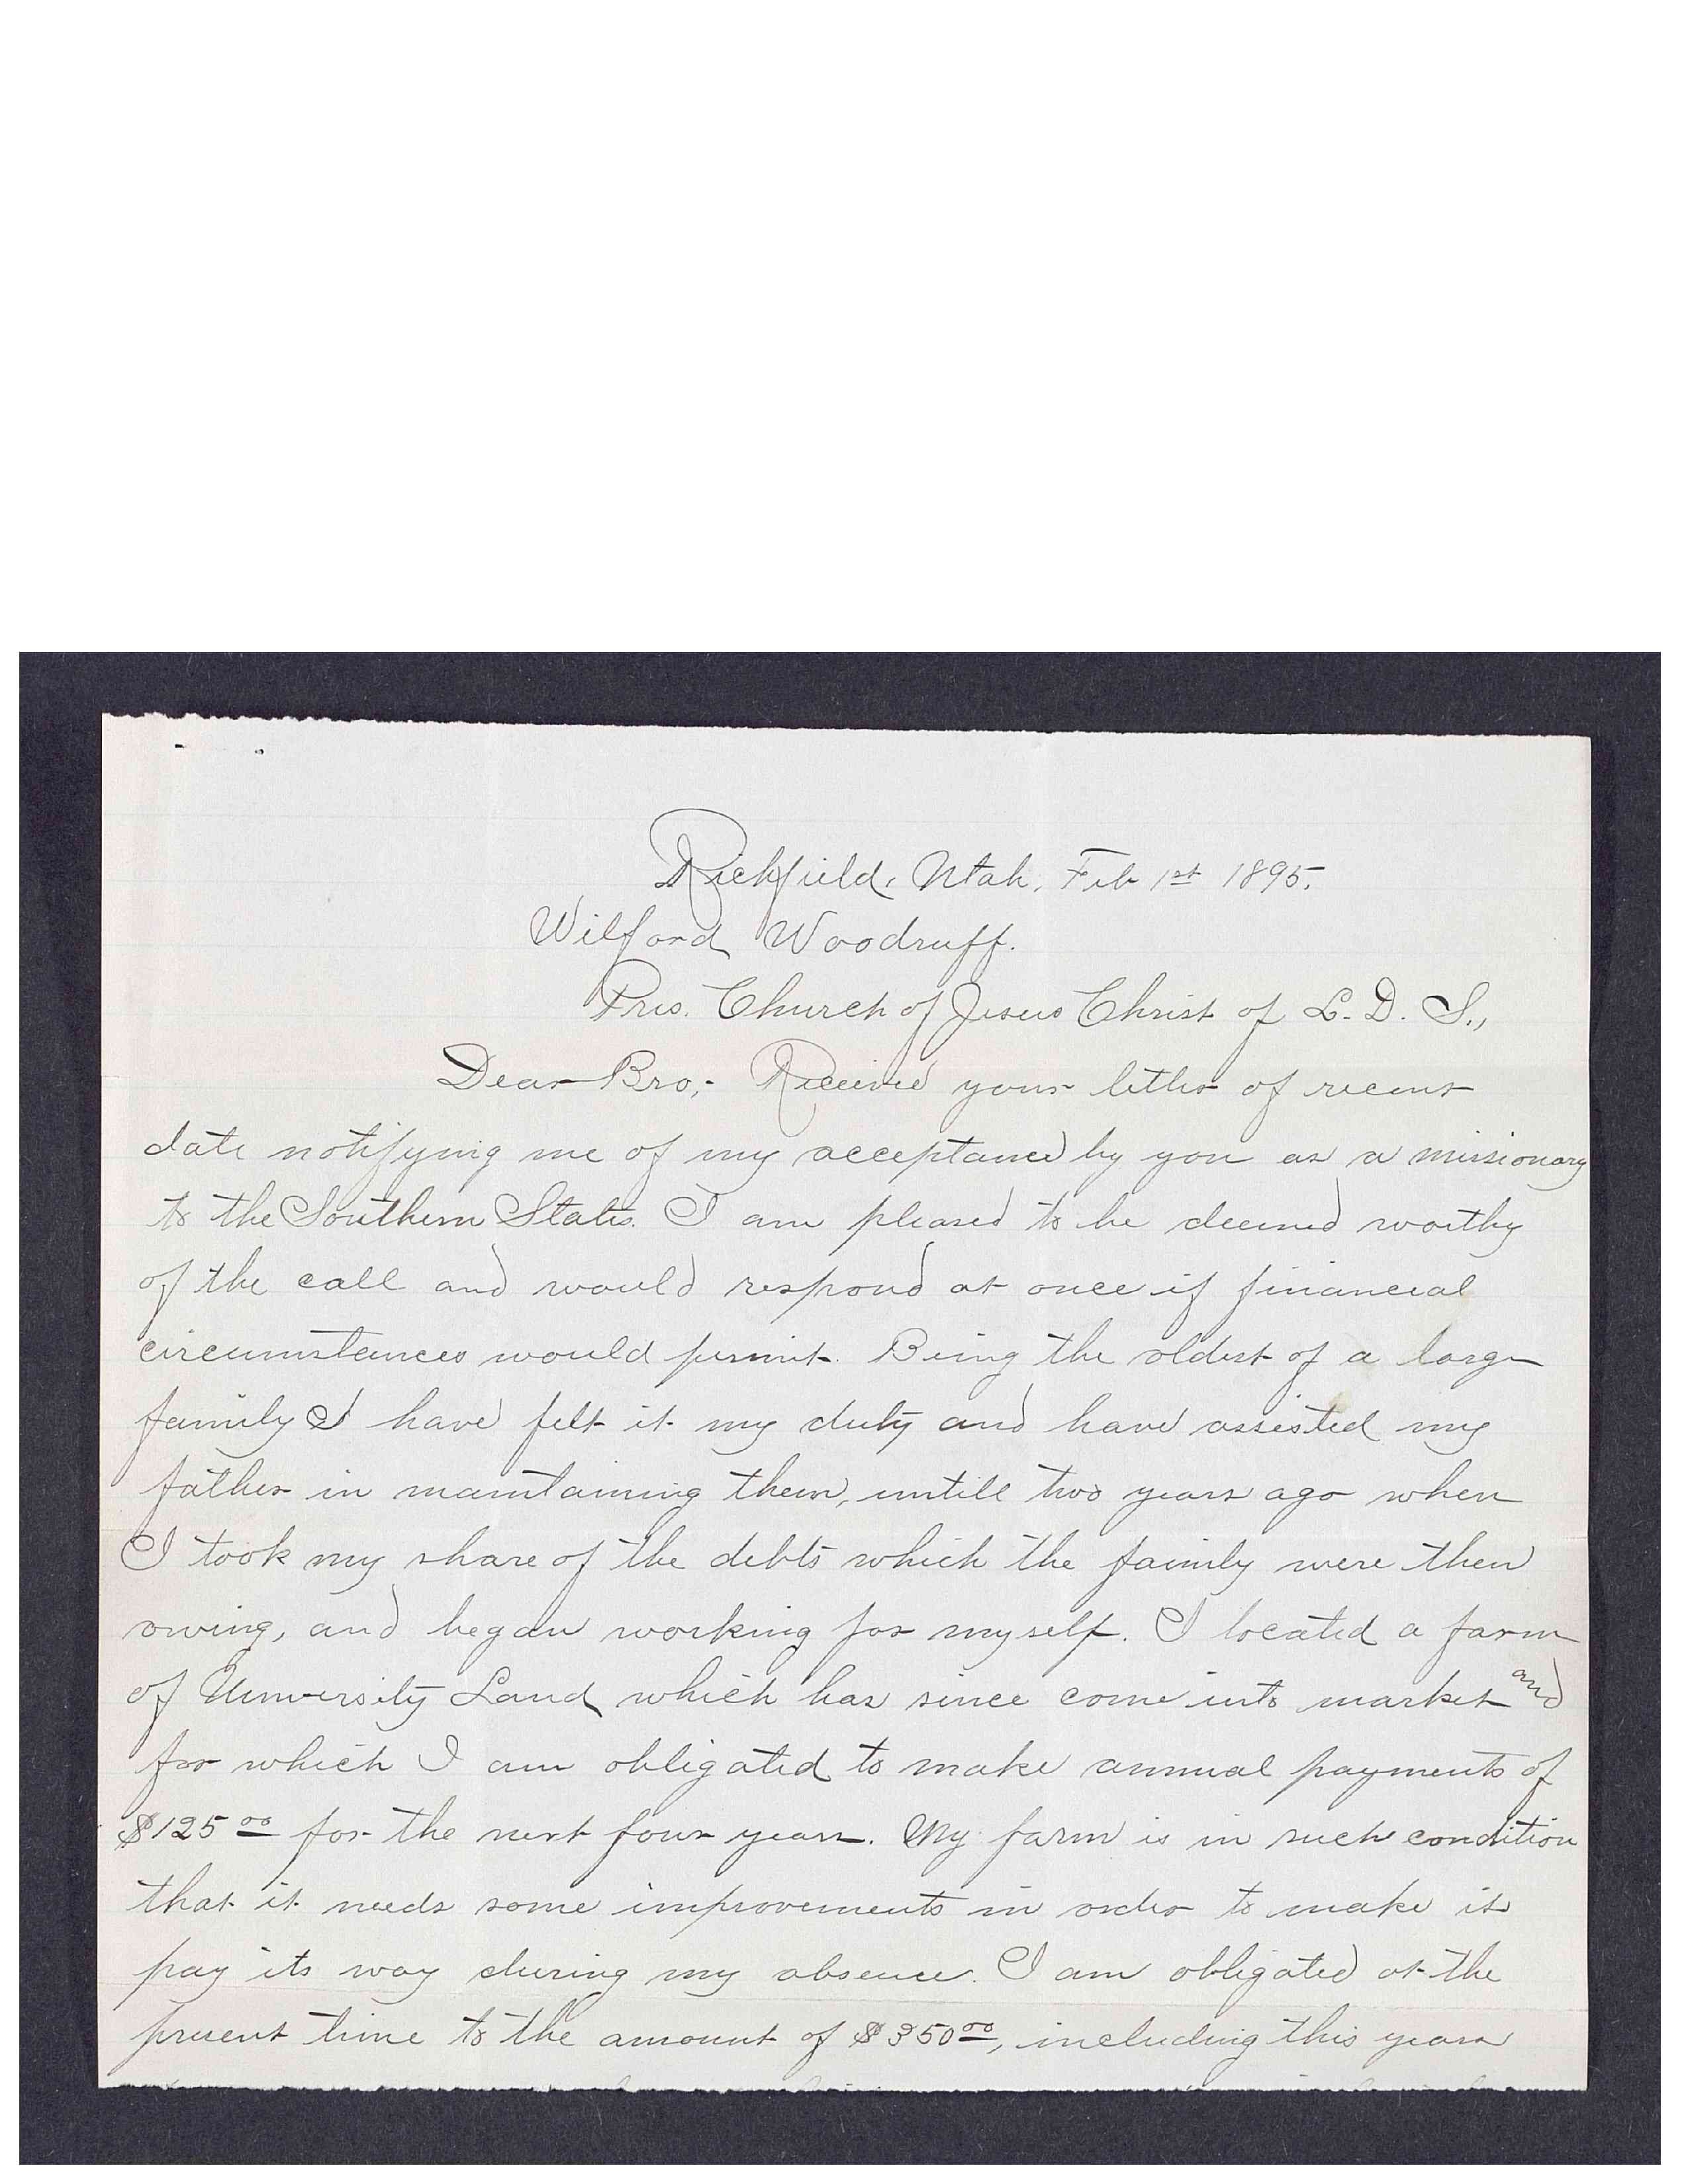 Richfield, Utah, Feb 1st 1895.
Wilford Woodruff.
Pres. Church of Jesus Christ of L. D. S.,
Dear Bro,- Received your letter of recent
date notifying me of my acceptance by you as a missionary
to the Southern States. I am pleased to be deemed worthy
of the call and would respond at once if financial
circumstances would permit. Being the oldest of a large
family I have felt it my duty and have assisted my
father in maintaining them, untill two years ago when
I took my share of the debts which the family were then
owing, and began working for myself. I located a farm
of University Land which has since come into market and
for which I am obligated to make annual payments of
$125 00 for the next four years. My farm is in such condition
that it needs some improvements in order to make it
pay its way during my absence. I am obligated at the
present time to the amount of $350 00, including this years